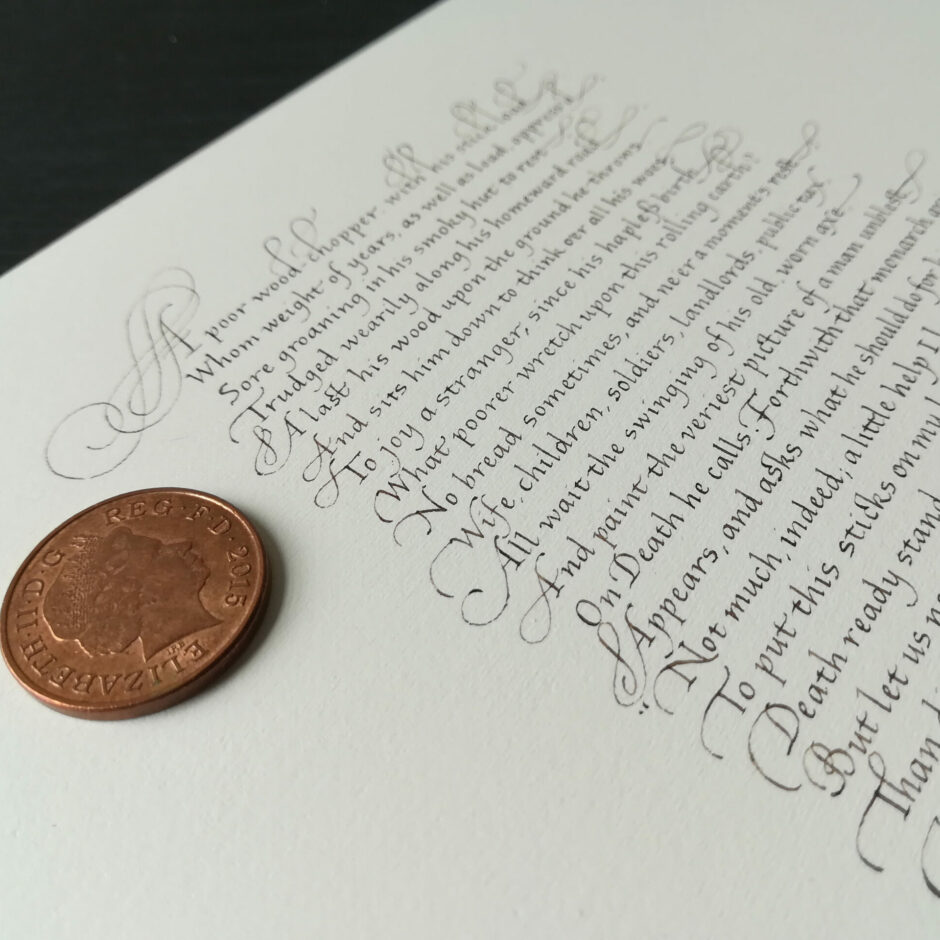 A poor wood-chopper, with his
Whom weight of years, as well as load, oppress'd
Sore groaning in his smoky hut to rest
Trudged wearily along his homeward road
At last his wood upon the ground he throws
And sits him down to think oer all his woes
To joy a stranger, since his hapleß birth
What poorer wretch upon this rolling earth?
No bread sometimes, and ne'er a moments rest
Wife, children, soldiers, landlords, public tax
All wait the swinging of his old, worn axe
And paint the veriest picture of a man unblest
On Death he calls. Forthwith that monarch
Appears, and asks what he should do for
Not much, indeed; a little help I
To put this sticks on my
Death ready stand
But let us
Than
ELIZABETH·II·D·G REG·F·D·2015